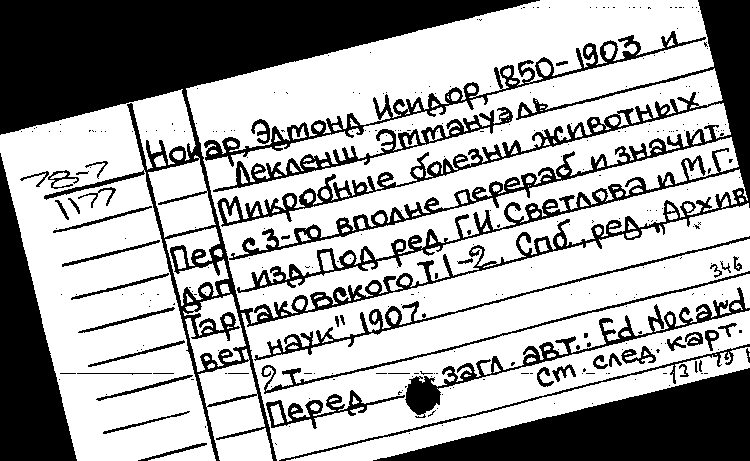 Нокар, Эдмонд Исидор, 1850-1903 и
Лекленш, Эммануэль
78-7
1177
Микробные болезни животных
Пер. с 3-го вполне перераб. и значит.
доп. изд. Под ред. Г.И. Светлова и М.Г.
Тартаковского. Т. 1-2. Спб, ред. "Архив
вет. наук", 1907.
346
2 т.
Перед загл. авт.: Ed. Nocard
см. след. карт.
13 11 79